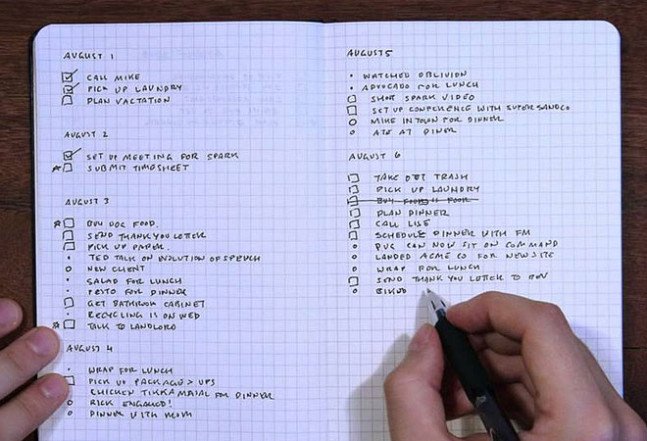 AUGUST 1
CALL MIKE
PICK UP LAUNDRY
PLAN VACTATION
AUGUST 2
SET UP MEETING FOR SPARK
SUBMIT TIMESHEET
AUGUST 3
BUY DOG FOOD
SEND THANK YOU LETTER
PICK UP PAPER
TED TALK ON EVOLUTION OF SPEECH
NEW CLIENT
SALAD FOR LUNCH
PESTO FOR DINNER
GET BATHROOM CABINET
RECYCLING IS ON WED
TALK TO LANDLORD
AUGUST 4
WRAP FOR LUNCH
PICK UP PACKAGE > UPS
CHICKEN TIKKA FOR DINNER
RICK ENGAGED!
DINNER WITH MOM
AUGUST 5
WATCHED OBLIVION
AVOCADO FOR LUNCH
SHOOT SPARK VIDEO
SET UP CONFERENCE WITH SUPERSANDCO
MIKE IN TOWN FOR DINNER
ATE AT DINER
AUGUST 6
TAKE OUT TRASH
PICK UP LAUNDRY
BUY
PLAN DINNER
CALL LISE
SCHEDULE DINNER WITH FM
PUG CAN NOW SIT ON COMMAND
LANDED ACME CO FOR NEW SITE
WRAP FOR LUNCH
SEND THANK YOU LETTER TO